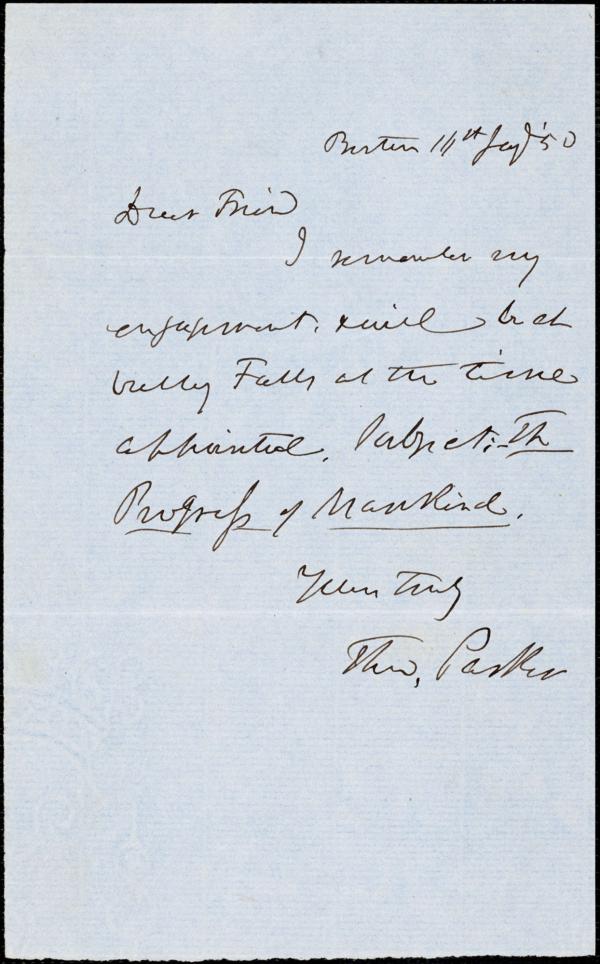 Boston 14th Jany '50
Dear Friend
I remember my
engagement. & will be at
Valley Falls at the time
appointed. Subject: The
Progress of Mankind.
Yours truly
Theo. Parker